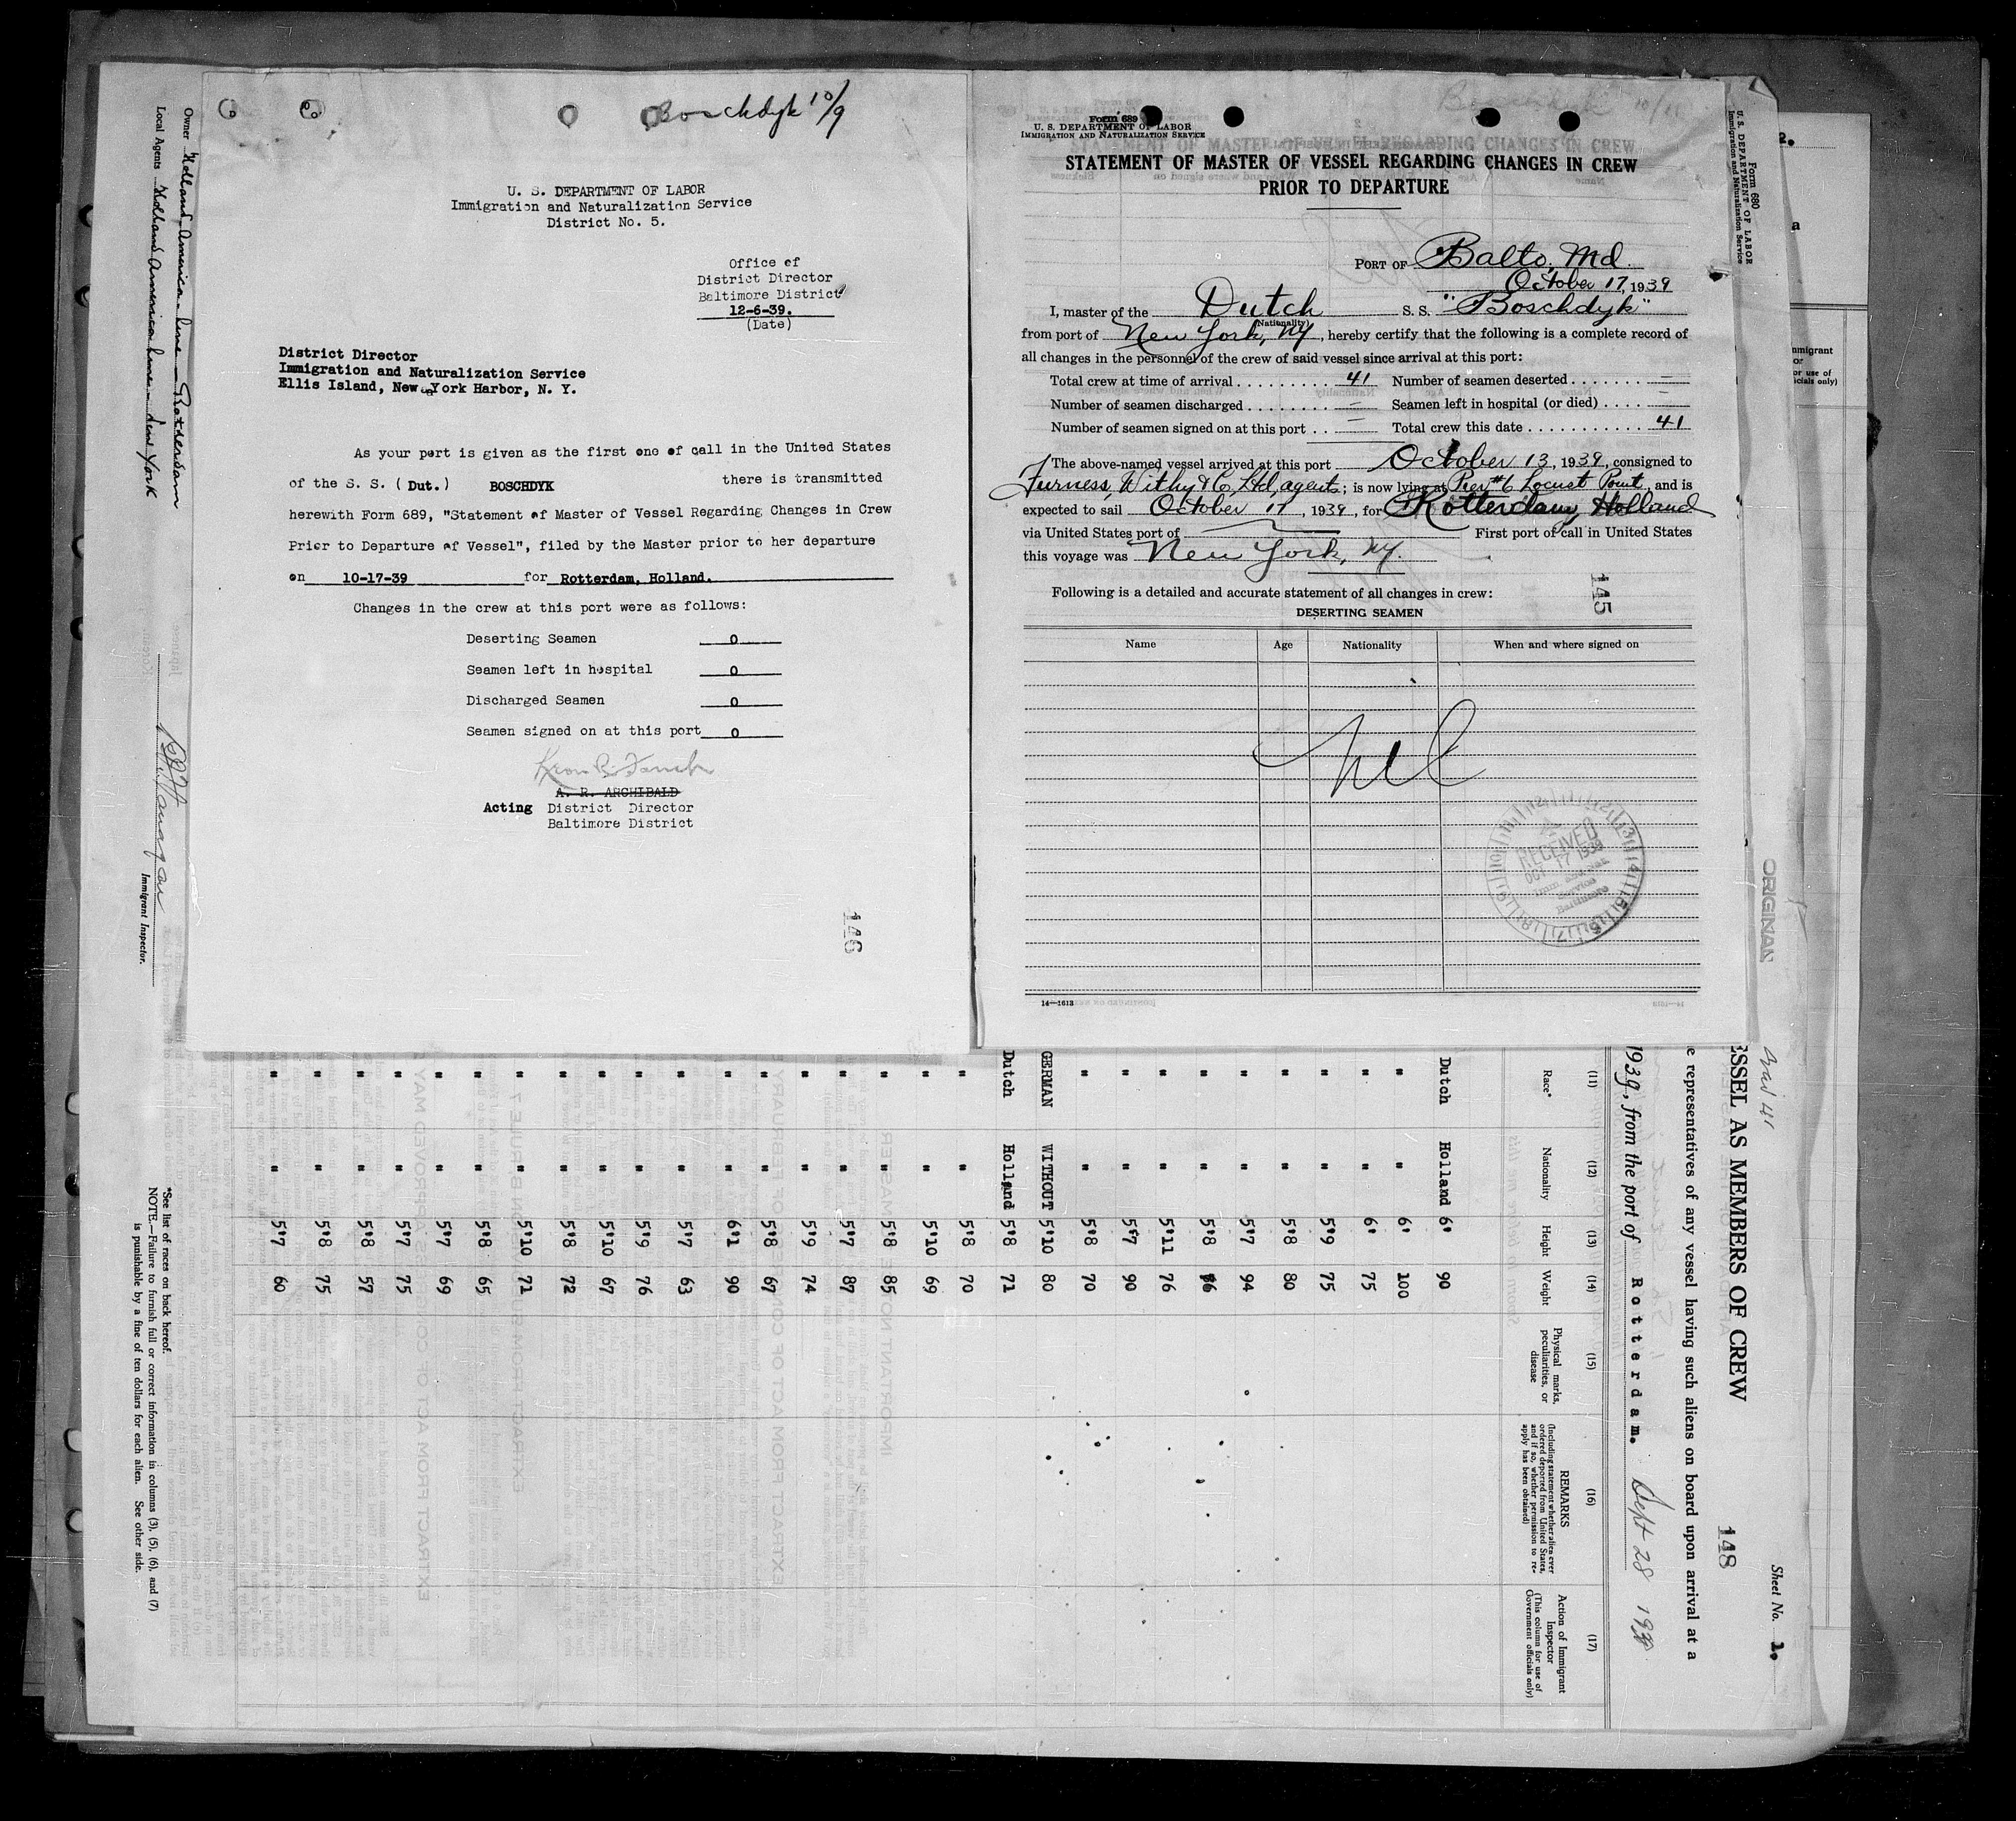 Boschdyk 10/9
U. S. DEPARTMENT OF LABOR
Immigration and Naturalization Service
District No. 5.
Office of
District Director
Baltimore District
12-6-39.
(Date)
District Director
Immigration and Naturalization Service
Ellis Island, New York Harbor, N. Y.
As your port is given as the first one of call in the United States
of the S. S. (Dut.) BOSCHDYK there is transmitted
herewith Form 689, "Statement of Master of Vessel Regarding Changes in Crew
Prior to Departure of Vessel", filed by the Master prior to her departure
on 10-17-39 for Rotterdam, Holland.
Changes in the crew at this port were as follows:
Deserting Seamen 0
Seamen left in hospital 0
Discharged Seamen 0
Seamen signed on at this port 0
A. R. ARCHIBALD
Acting District Director
Baltimore District
146
Form 689
U. S. DEPARTMENT OF LABOR
IMMIGRATION AND NATURALIZATION SERVICE
STATEMENT OF MASTER OF VESSEL REGARDING CHANGES IN CREW
PRIOR TO DEPARTURE
PORT OF Balto, Md.
October 17, 1939
I, master of the Dutch S. S. "Boschdyk"
(Nationality)
from port of New York, NY, hereby certify that the following is a complete record of
all changes in the personnel of the crew of said vessel since arrival at this port:
Total crew at time of arrival . . . . . . . . . 41 Number of seamen deserted . . . . . . . —
Number of seamen discharged . . . . . . . . — Seamen left in hospital (or died) . . . . —
Number of seamen signed on at this port . . — Total crew this date . . . . . . . . . . . 41
The above-named vessel arrived at this port October 13, 1939, consigned to
Furness, Withy & Co, Ltd, agents; is now lying at Pier #6 Locust Point, and is
expected to sail October 17, 1939, for Rotterdam, Holland
via United States port of — First port of call in United States
this voyage was New York, NY.
145
Following is a detailed and accurate statement of all changes in crew:
DESERTING SEAMEN
Name Age Nationality When and where signed on
Nil
RECEIVED
OCT 17 1939
Baltimore
14—1613
Owner Holland America Line — Rotterdam
Local Agents Holland America Line — New York
Immigrant Inspector.
*See list of races on back hereof.
NOTE.—Failure to furnish full or correct information in columns (3), (5), (6), and (7)
is punishable by a fine of ten dollars for each alien. See other side.
Form 680
U. S. DEPARTMENT OF LABOR
Immigration and Naturalization Service
ORIGINAL
Sheet No. 1.
148
ESSEL AS MEMBERS OF CREW
e representatives of any vessel having such aliens on board upon arrival at a
1939, from the port of Rotterdam. Sept 28 1939
(11) (12) (13) (14) (15) (16) (17)
Race* Nationality Height Weight Physical marks, peculiarities, or disease REMARKS (Including statement whether alien ever ordered deported from United States, and if so, whether permission to reapply has been obtained) Action of Immigrant Inspector (This column for use of Government officials only)
Dutch Holland 6' 90
" " 6' 100
" " 6' 75
" " 5'9 75
" " 5'8 80
" " 5'7 94
" " 5'8 66
" " 5'11 76
" " 5'7 90
" " 5'8 70
GERMAN WITHOUT 5'10 80
Dutch Holland 5'8 71
" " 5'8 70
" " 5'10 69
" " 5'8 85
" " 5'7 87
" " 5'9 74
" " 5'8 67
" " 6'1 90
" " 5'7 63
" " 5'9 76
" " 5'10 67
" " 5'8 72
" " 5'10 71
" " 5'8 65
" " 5'7 69
" " 5'7 75
" " 5'8 57
" " 5'8 75
" " 5'7 60